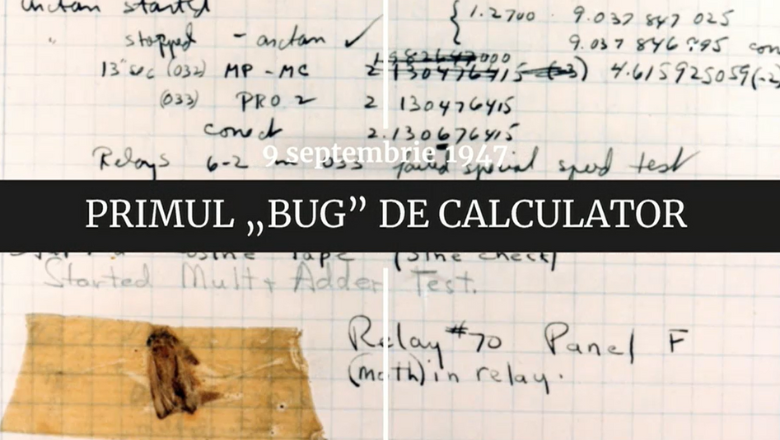 arctan started
{ 1.2700 9.037 847 025
" stopped - arctan ✓ 9.037 846 995
13"uc (032) MP - MC 4.615925059(-2)
(033) PRO 2 2.130476415
correct 2.130676415
Relays 6-2 in 033 failed special speed test
9 septembrie 1947
PRIMUL „BUG” DE CALCULATOR
Tape (Sine check)
Started Mult + Adder Test.
Relay #70 Panel F
(moth) in relay.